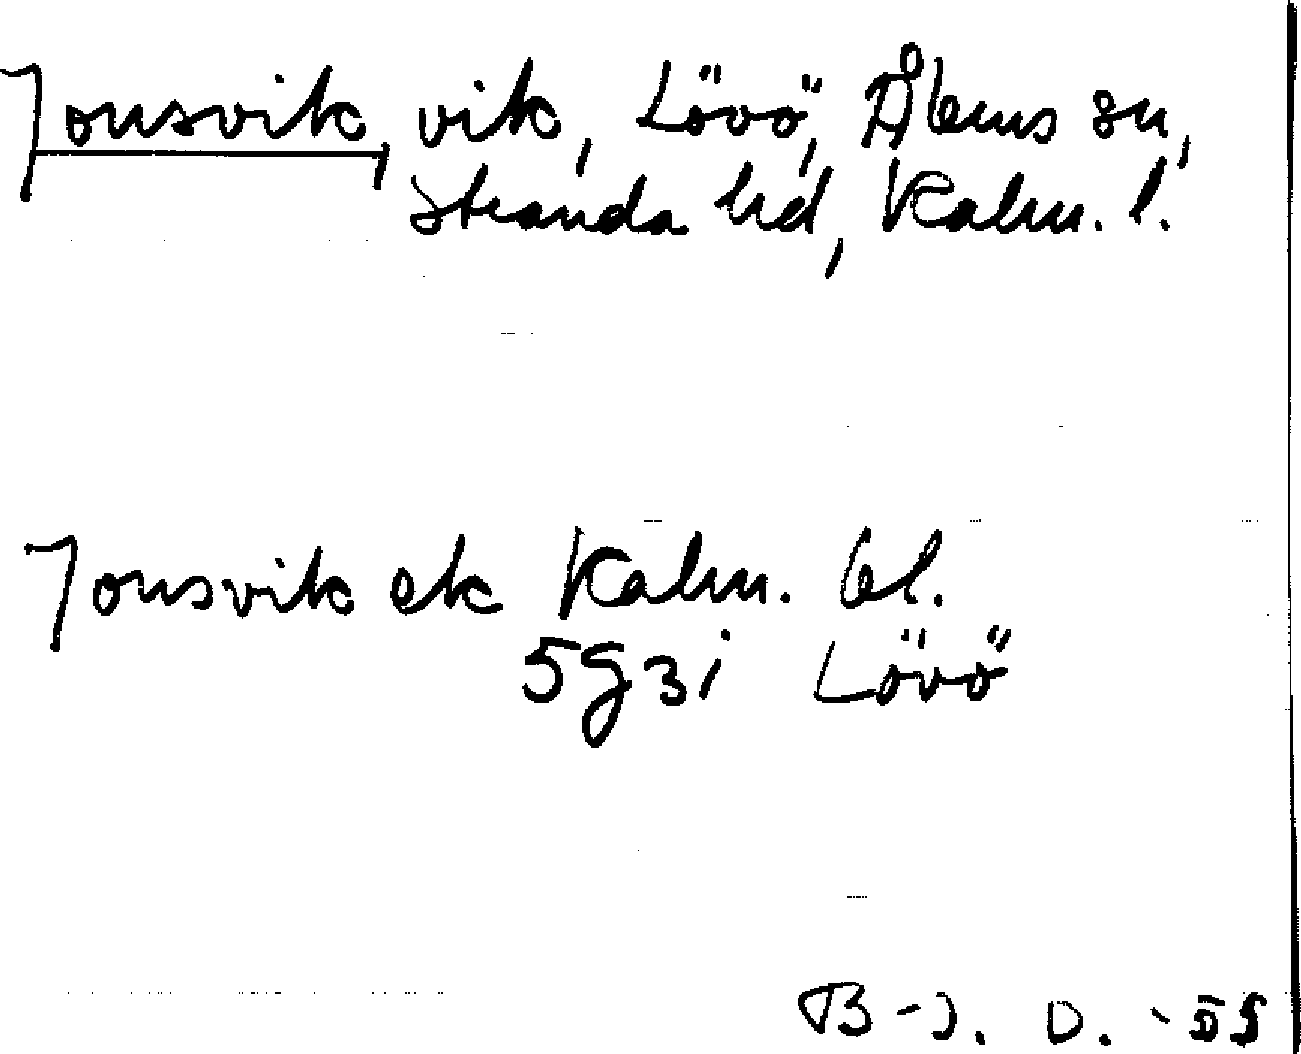 Jonsvik, vik, Lövö, Ålems sn,
Stranda hd, Kalm. l.
Jonsvik ek Kalm. bl.
5g3i Lövö
B-J. O. -55